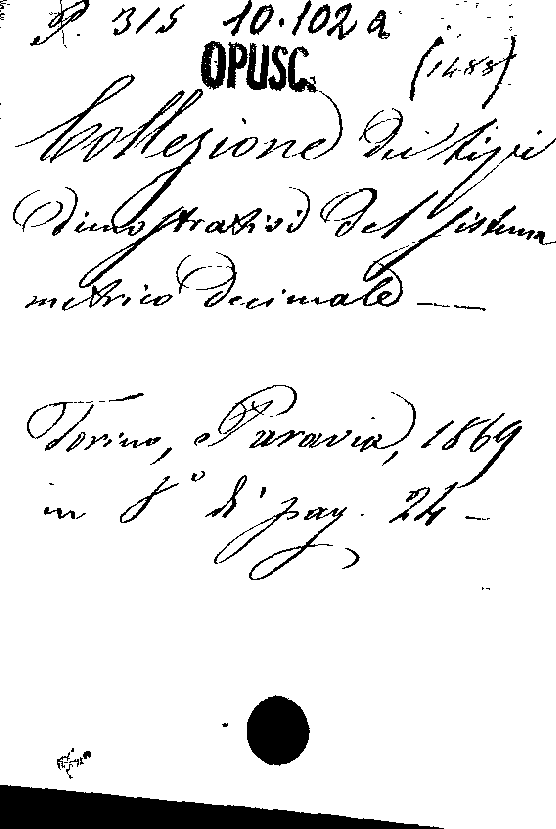 P. 315 10.102 a
OPUSC.
(1488)
Collezione dei tipi
dimostrativi del sistema
metrico decimale —
Torino, Paravia, 1869
in 8° di pag. 24 —